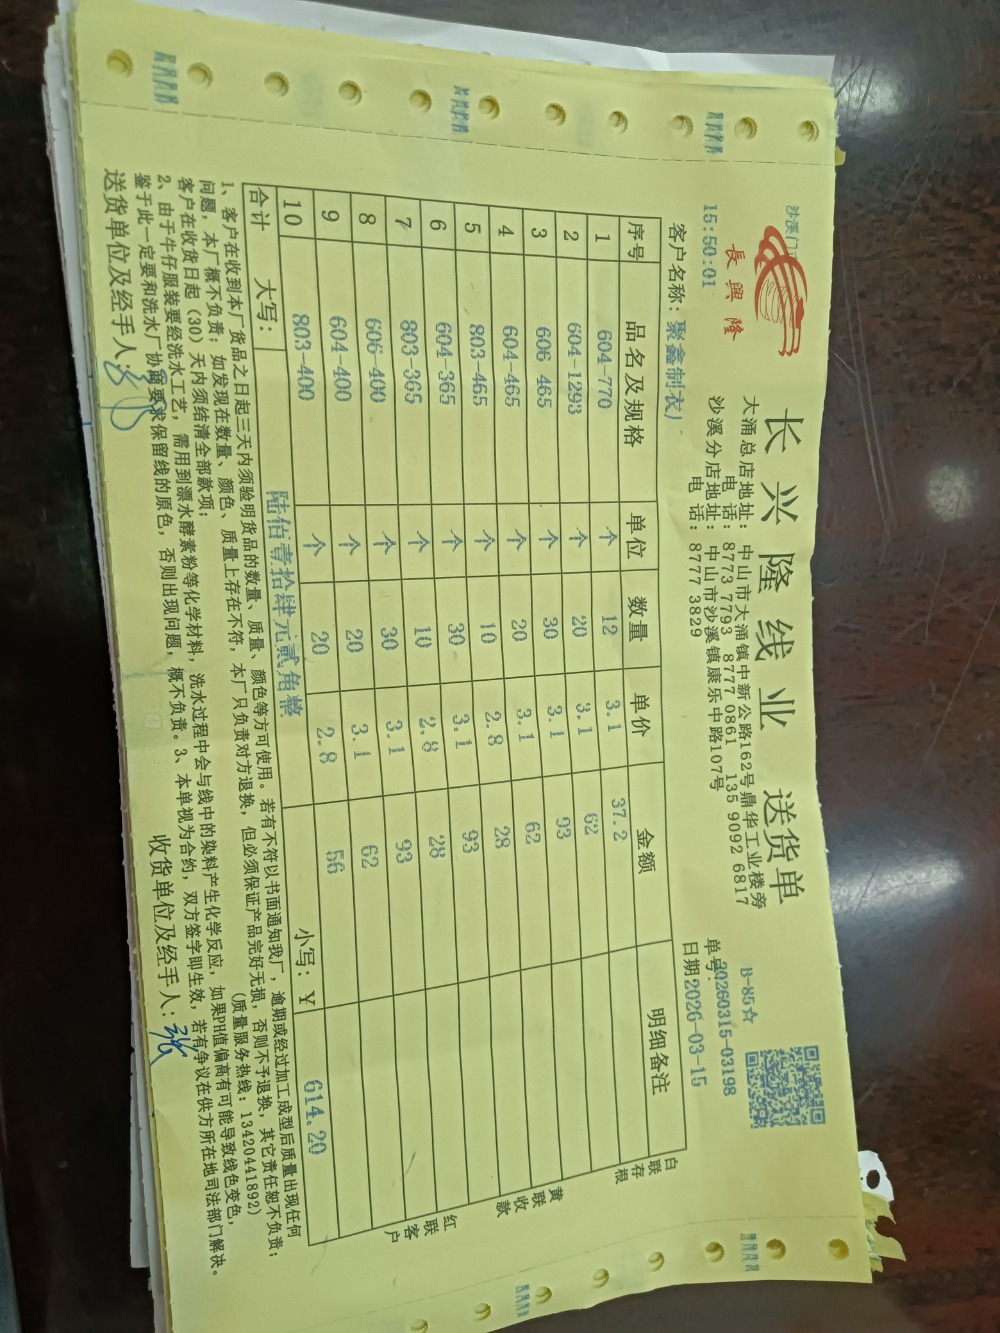 沙溪门
長興隆
15:50:01
长兴隆线业 送货单
大涌总店地址：中山市大涌镇中新公路162号鼎华工业楼旁
电 话：8773 7793 8777 0861 135 9092 6817
沙溪分店地址：中山市沙溪镇康乐中路107号
电 话：8777 3829
B-85☆
单号：20260315-03198
日期2026-03-15
客户名称：聚鑫制衣厂
序号 品名及规格 单位 数量 单价 金额 明细备注
1 604-770 个 12 3.1 37.2
2 604-1293 个 20 3.1 62
3 606-465 个 30 3.1 93
4 604-465 个 20 3.1 62
5 803-465 个 10 2.8 28
6 604-365 个 30 3.1 93
7 803-365 个 10 2.8 28
8 606-400 个 30 3.1 93
9 604-400 个 20 3.1 62
10 803-400 个 20 2.8 56
合计 大写：陆佰壹拾肆元贰角整 小写：￥ 614.20
白联存根
黄联收款
红联客户
1、客户在收到本厂货品之日起三天内须验明货品的数量、质量、颜色等方可使用。若有不符以书面通知我厂，逾期或经过加工成型后质量出现任何
问题，本厂概不负责；如发现在数量、颜色、质量上存在不符，本厂只负责对方退换，但必须保证产品完好无损，否则不予退换，其它责任恕不负责；
客户在收货日起（30）天内须结清全部款项； （质量服务热线：13420441892）
2、由于牛仔服装要经洗水工艺，需用到漂水酵素粉等化学材料，洗水过程中会与线中的染料产生化学反应，如果PH值偏高有可能导致线色变色，
鉴于此一定要和洗水厂协商要求保留线的原色，否则出现问题，概不负责。3、本单视为合约，双方签字即生效，若有争议在供方所在地司法部门解决。
送货单位及经手人： 收货单位及经手人：张